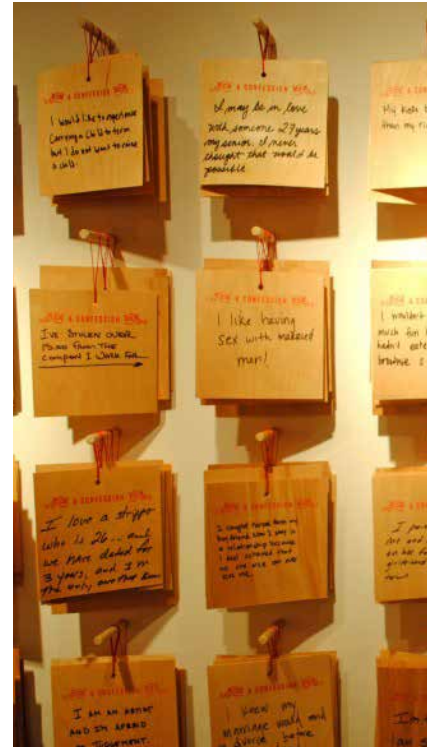 A CONFESSION
I would like to experience
carrying a child to term
but I do not want to raise
a child.
A CONFESSION
I may be in love
with someone 27 years
my senior. I never
thought that would be
possible
My kids
than my
A CONFESSION
I'VE STOLEN OVER
FROM THE
COMPANY I WORK FOR
A CONFESSION
I like having
sex with married
men!
I wouldn't
much fun
hadn't
A CONFESSION
I love a stripper
who is 26 ... and
we have dated for
3 years, and I'm
the only one that
A CONFESSION
I caught herpes from my
boyfriend. Now I stay in
a relationship because
I feel
no one else
I
one and
on her
girlfriend
now
A CONFESSION
I AM AN ARTIST
AND I'M AFRAID
JUDGEMENT.
A CONFESSION
I knew my
marriage would end
divorce before
I'm
I am